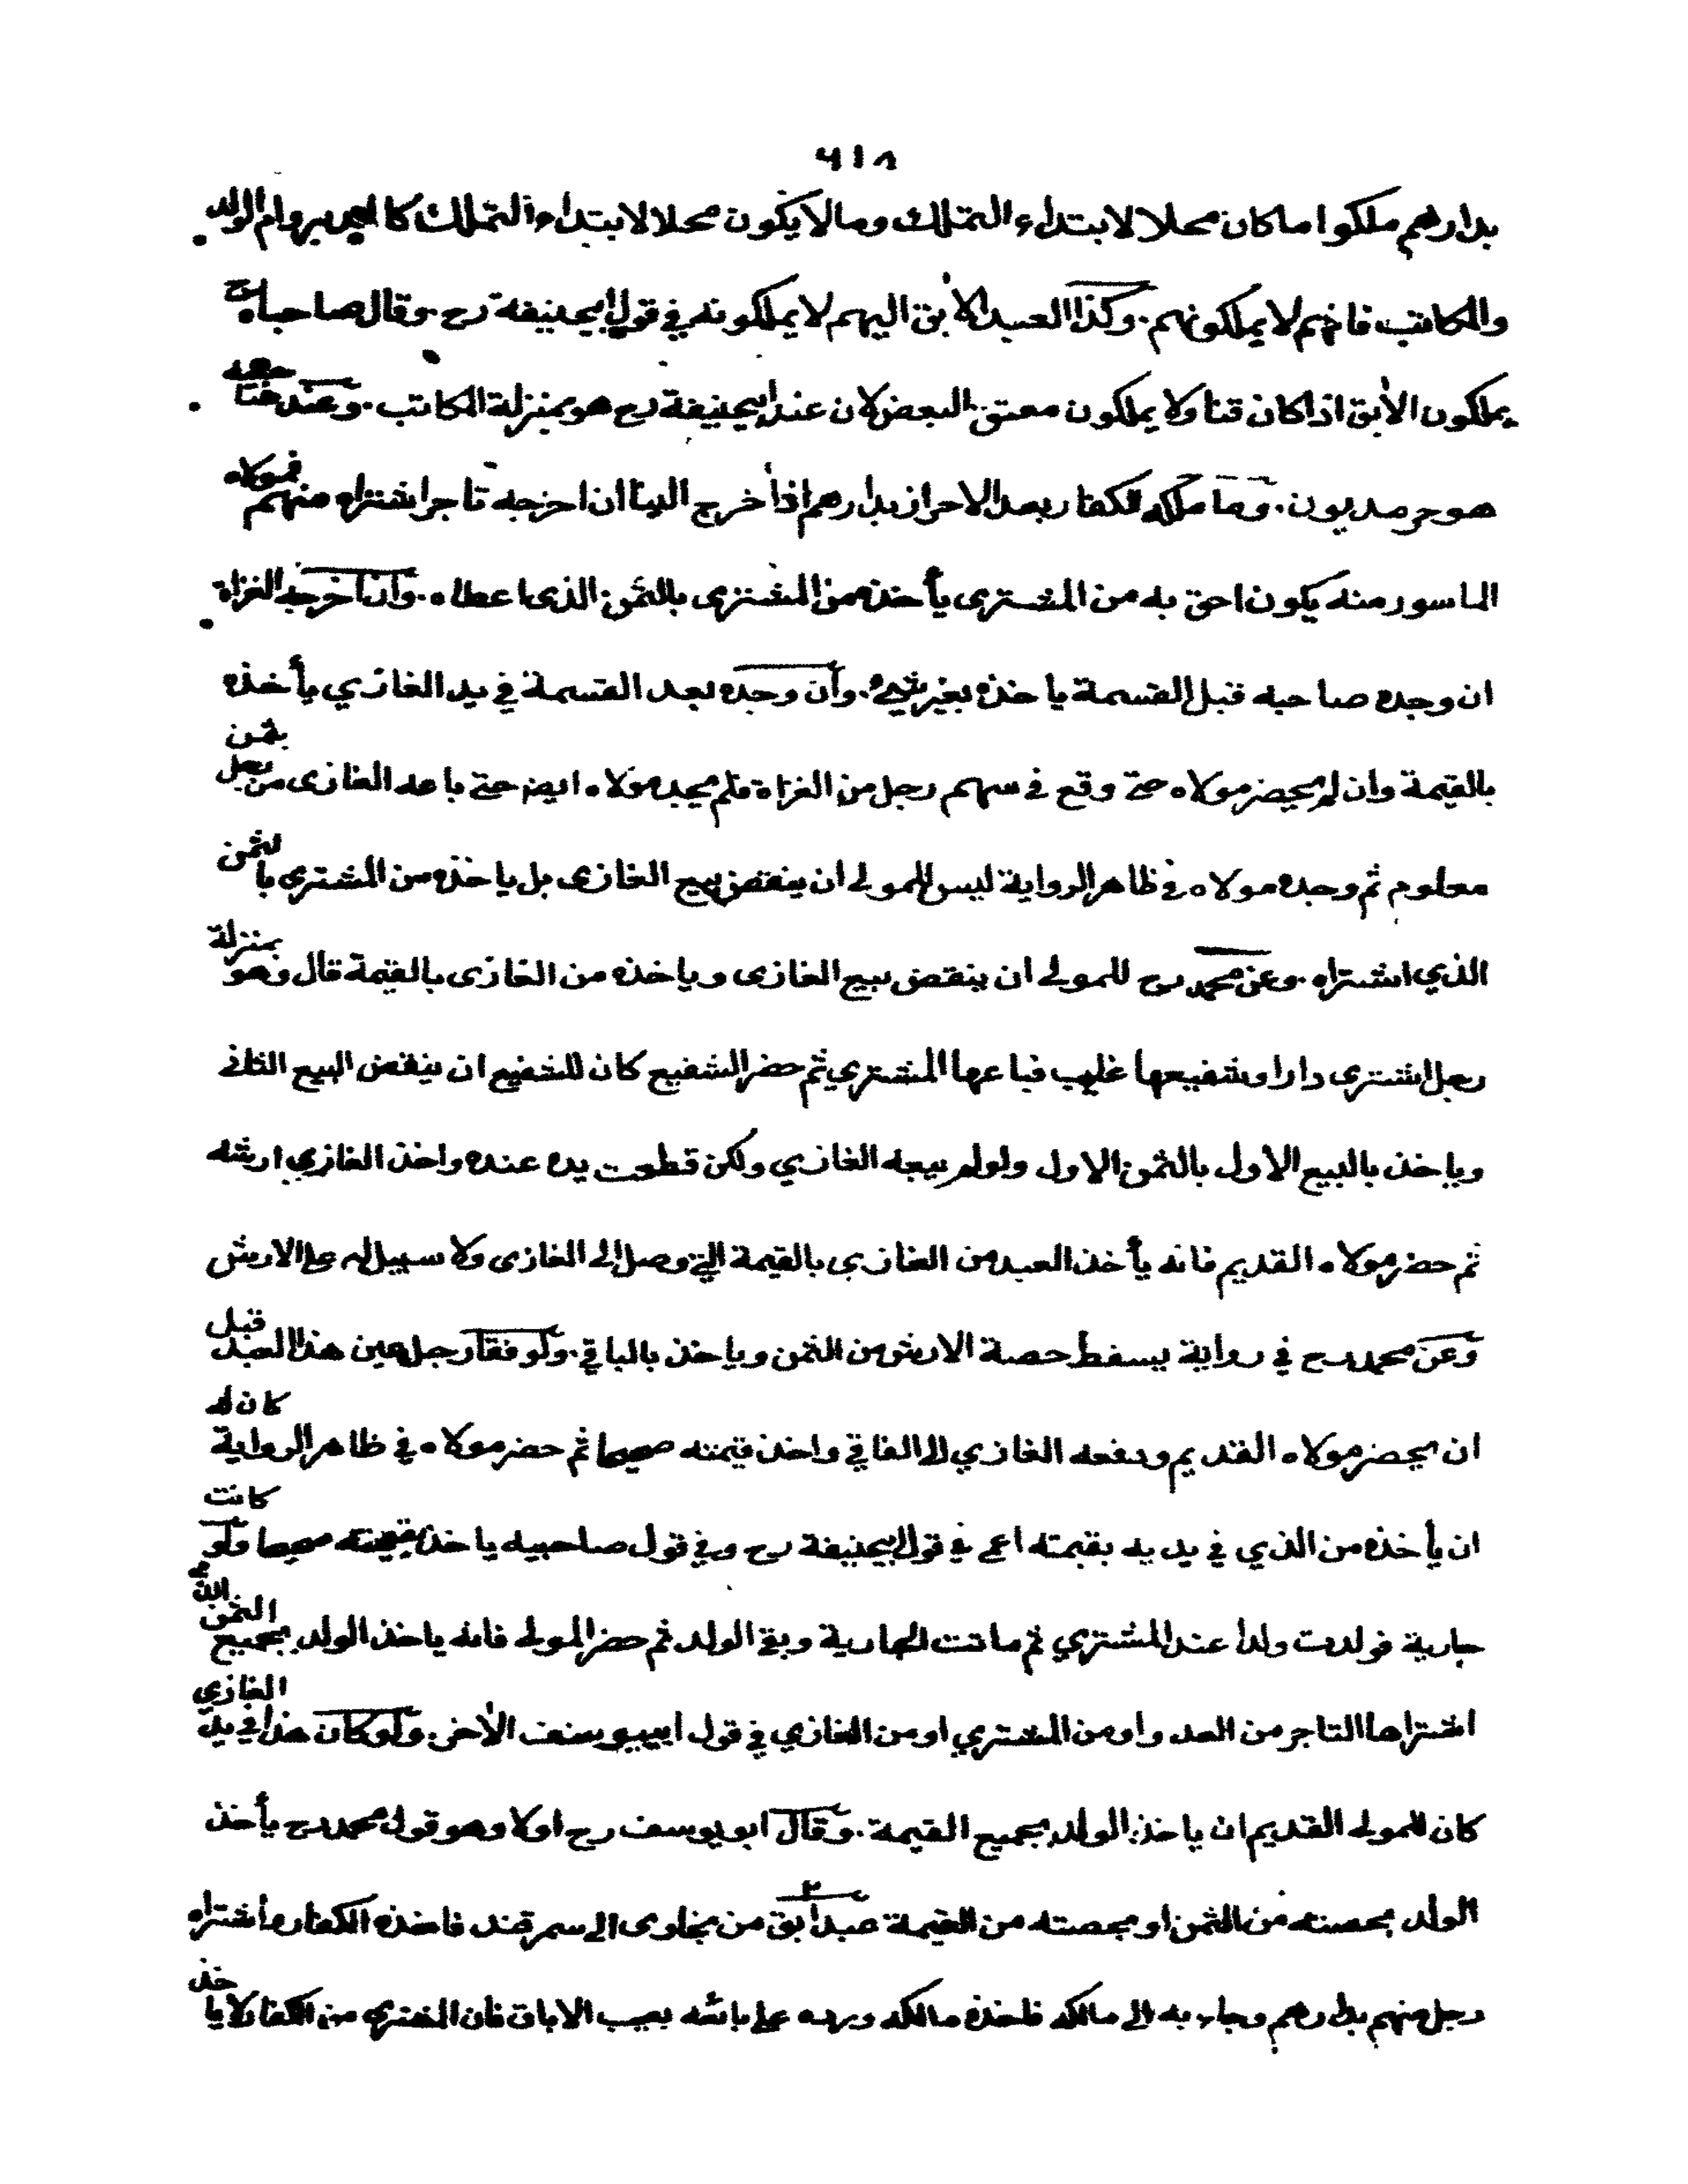 ٤١٨
بدارهم ملكوا ما كان محلا لابتداء التملك وما لا يكون محلا لابتداء التملك كالمدبر وام الولد
والمكاتب فانهم لا يملكونهم . وكذا العبد الآبق اليهم لا يملكونه في قول ابيحنيفة رح . وقال صاحباه رح
يملكون الآبق اذا كان قنا ولا يملكون معتق البعض لان عند ابيحنيفة رح هو بمنزلة المكاتب . وعندهما
هو حر مديون . وما ملكه الكفار بعد الاحراز بدارهم اذا أخرج الينا ان اخرجه تاجر اشتراه منهم فمولاه
الماسور منه يكون احق به من المشترى يأخذه من المشترى بالثمن الذى اعطاه . وان اخرجه الغزاة
ان وجده صاحبه قبل القسمة ياخذه بغير شيء . وان وجده بعد القسمة في يد الغازي يأخذه
بالقيمة وان لم يحضر مولاه حتى وقع في سهم رجل من الغزاة فلم يجد مولاه ايضا حتى باعه الغازى من رجل بثمن
معلوم ثم وجده مولاه في ظاهر الرواية ليس للمولى ان ينقض بيع الغازى بل ياخذه من المشترى بالثمن
الذي اشتراه . وعن محمد رح للمولى ان ينقض بيع الغازى وياخذه من الغازى بالقيمة قال وهو بمنزلة
رجل اشترى دارا وشفيعها غايب فباعها المشتري ثم حضر الشفيع كان للشفيع ان ينقض البيع الثانى
وياخذ بالبيع الاول بالثمن الاول ولو لم يبعه الغازي ولكن قطعت يده عنده واخذ الغازي ارشه
ثم حضر مولاه القديم فانه يأخذ العبد من الغازي بالقيمة التي وصل الى الغازى ولا سبيل له على الارش
وعن محمد رح في رواية يسقط حصة الارش من الثمن وياخذ بالباقي . ولو فقأ رجل عين هذا العبد قبل
ان يحضر مولاه القديم ودفعه الغازي الى الفاقي واخذ قيمته صحيحا ثم حضر مولاه في ظاهر الرواية كان له
ان يأخذه من الذي في يديه بقيمته اعمى في قول ابيحنيفة رح وفي قول صاحبيه ياخذ بقيمته صحيحا ولو كانت
جارية فولدت ولدا عند المشتري ثم ماتت الجارية وبقي الولد ثم حضر المولى فانه ياخذ الولد بجميع الثمن الذي
اشتراها التاجر من العدو او من المشتري او من الغازي في قول ابييوسف الآخر . ولو كان هذا في يد الغازي
كان للمولى القديم ان ياخذ الولد بجميع القيمة . وقال ابو يوسف رح اولا وهو قول محمد رح يأخذ
الولد بحصته من الثمن او بحصته من القيمة عبد أبق من بخاوى الى سمرقند فاخذه الكفار واشتراه
رجل منهم بدارهم وجاء به الى مالكه فاخذه مالكه ورده على بائعه بعيب الاباق فان المشتري من الكفار لا ياخذ